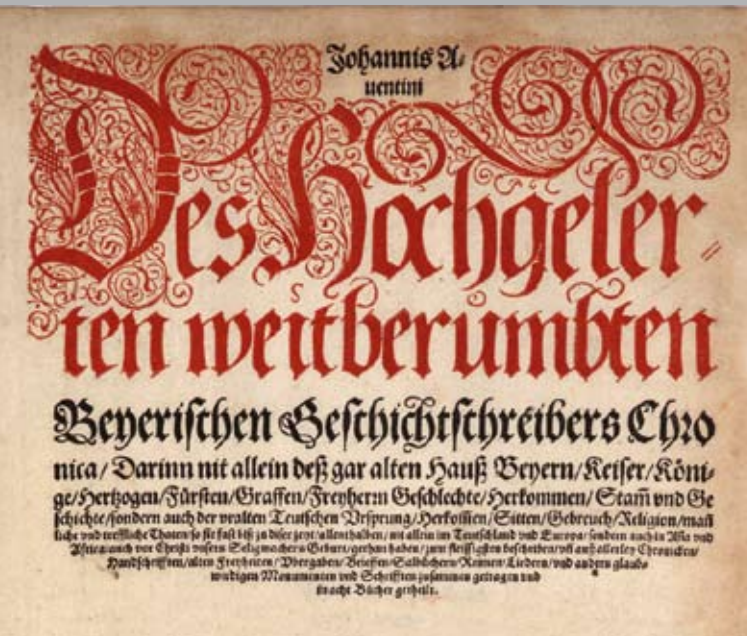 Johannis A⸗
uentini
Des Hochgeler⸗
ten weitberumbten
Beyerischen Geschichtschreibers Chro
nica/ Darinn nit allein deß gar alten Hauß Beyern/Keiser/Köni⸗
ge/Hertzogen/Fürsten/Graffen/Freyherrn Geschlechte/Herkommen/Stam̄ vnd Ge
schichte/sondern auch der vralten Teutschen Vrsprung/Herkom̄en/Sitten/Gebreuch/Religion/man̄
liche vnd treffliche Thaten/so sie fast biß zu diser zeyt/allenthalben/nit allein im Teutschland vnd Europa/sondern auch in Asia vnd
Africa/auch vor Christi vnsers Seligmachers Geburt/gethan haben/zum fleissigsten beschrieben/vn̄ auß allerley Chronicken/
Handschrifften/alten Freyheiten/Vbergaben/Brieffen/Salbüchern/Reimen/Liedern/vnd andern glaub⸗
wirdigen Monumenten vnd Schrifften zusammen getragen vnd
in acht Bücher getheilt.